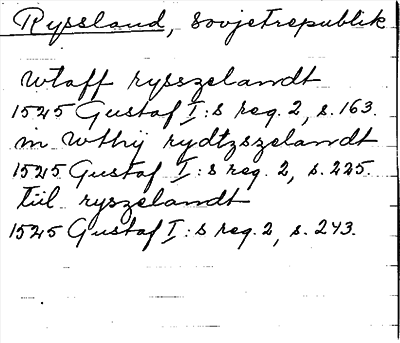 Ryssland, Sovjetrepublik
wtaff rysszelandt
1525 Gustaf I:s reg. 2, s. 163.
in wthij rydtzszelandt
1525 Gustaf I:s reg. 2, s. 225.
tiil ryszelandt
1525 Gustaf I:s reg. 2, s. 243.